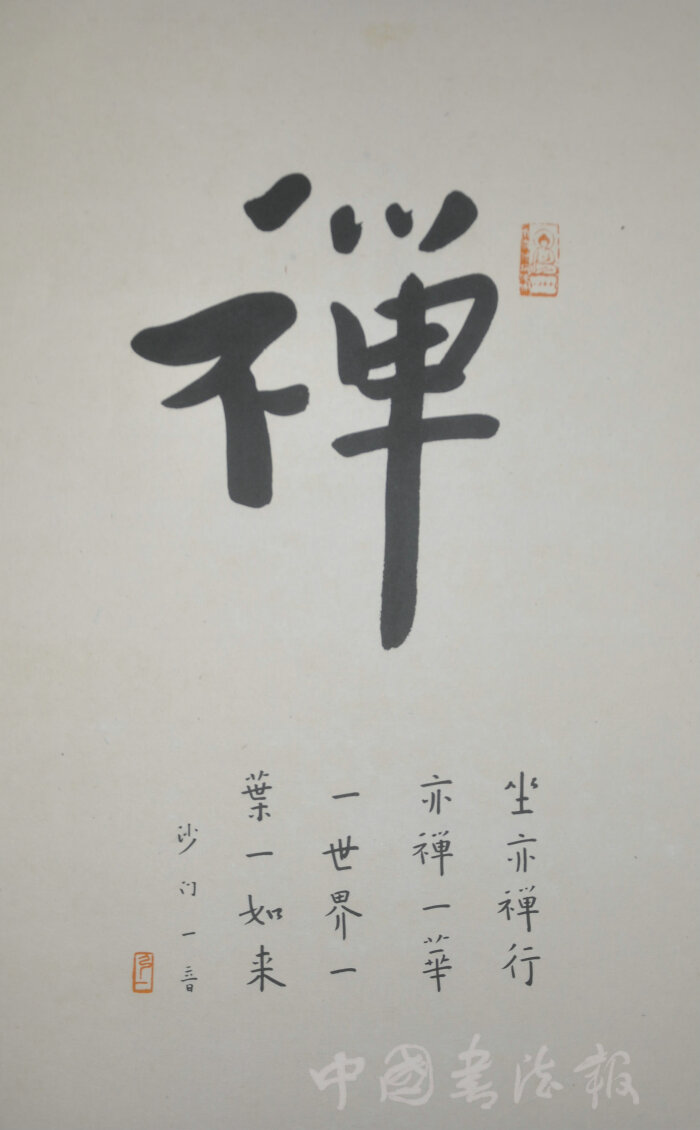 禅
坐亦禪行
亦禪一華
一世界一
葉一如来
沙门一音
中國书法報